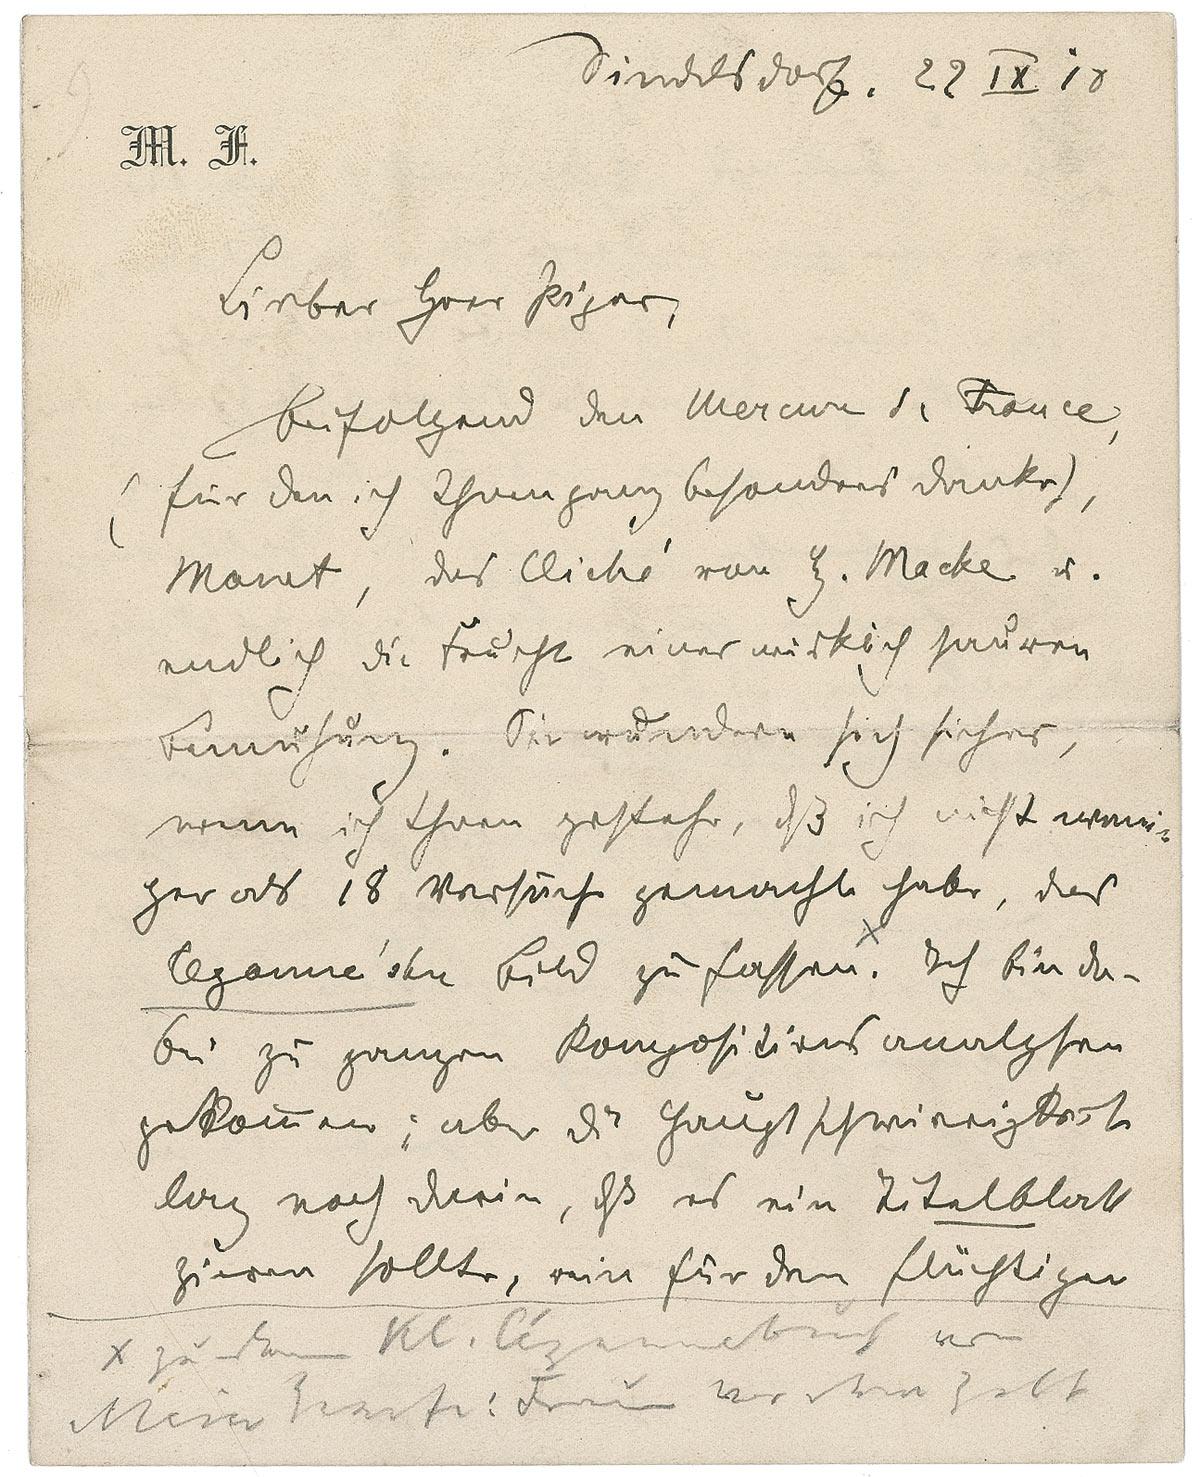 Sindelsdorf. 22 IX 10
M. F.
Lieber Herr Piper,
beifolgend den Mercure d. France,
(für den ich Ihnen ganz besonders danke),
Manet, das Cliché von H. Macke u.
endlich die Frucht einer wirklich sauren
Bemühung. Sie wundern sich sicher,
wenn ich Ihnen gestehe, dß ich nicht weni-
ger als 18 Versuche gemacht habe, das
Cézanne'sche Bild zu fassen.x Ich bin da-
bei zu ganzen Kompositionsanalysen
gekommen; aber die Hauptschwierigkeit
lag noch darin, dß es ein Titelblatt
zieren sollte, rein für den flüchtigen
x zu dem Kl. Cézannebuch von
Meier Graefe: Frauen vor dem Zelt